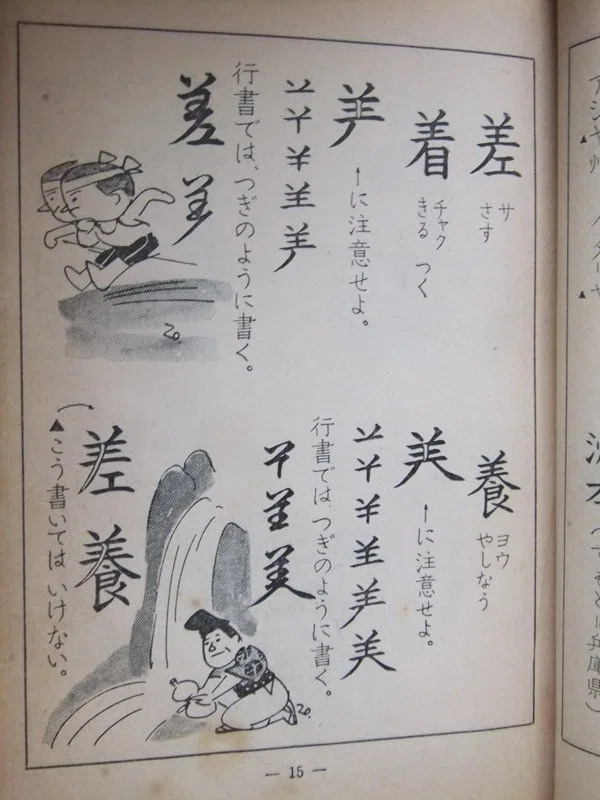 差 サ さす
着 チャク きる つく
↑に注意せよ。
行書では、つぎのように書く。
差
養 ヨウ やしなう
↑に注意せよ。
美
行書では、つぎのように書く。
美
差 養
▲こう書いてはいけない。
— 15 —
アジヤ州
兵庫県)